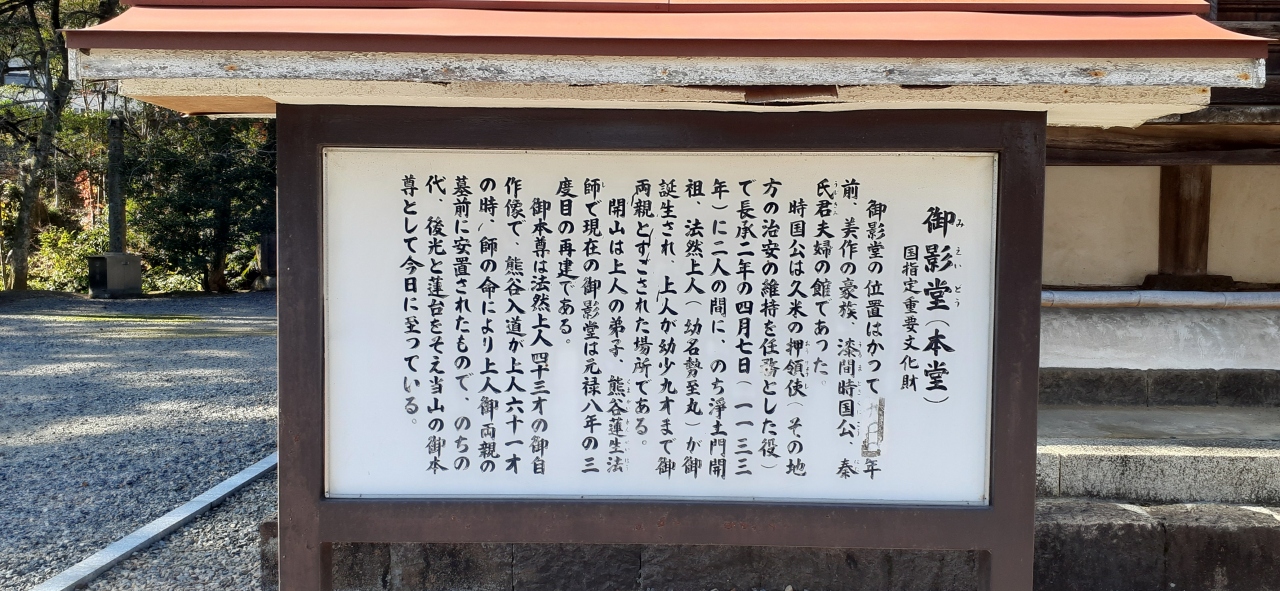 御影堂(本堂)
みえいどう
国指定重要文化財
御影堂の位置はかつて年
前、美作の豪族、漆間時国公、秦
氏君夫婦の館であった。
時国公は久米の押領使(その地
方の治安の維持を任務とした役)
で長承二年の四月七日(一一三三
年)に二人の間に、のち浄土門開
祖、法然上人(幼名勢至丸)が御
誕生され、上人が幼少九才まで御
両親とすごされた場所である。
開山は上人の弟子、熊谷蓮生法
師で現在の御影堂は元禄八年の三
度目の再建である。
御本尊は法然上人四十三才の御自
作像で、熊谷入道が上人六十一才
の時、師の命により上人御両親の
墓前に安置されたもので、のちの
代、後光と蓮台をそえ当山の御本
尊として今日に至っている。